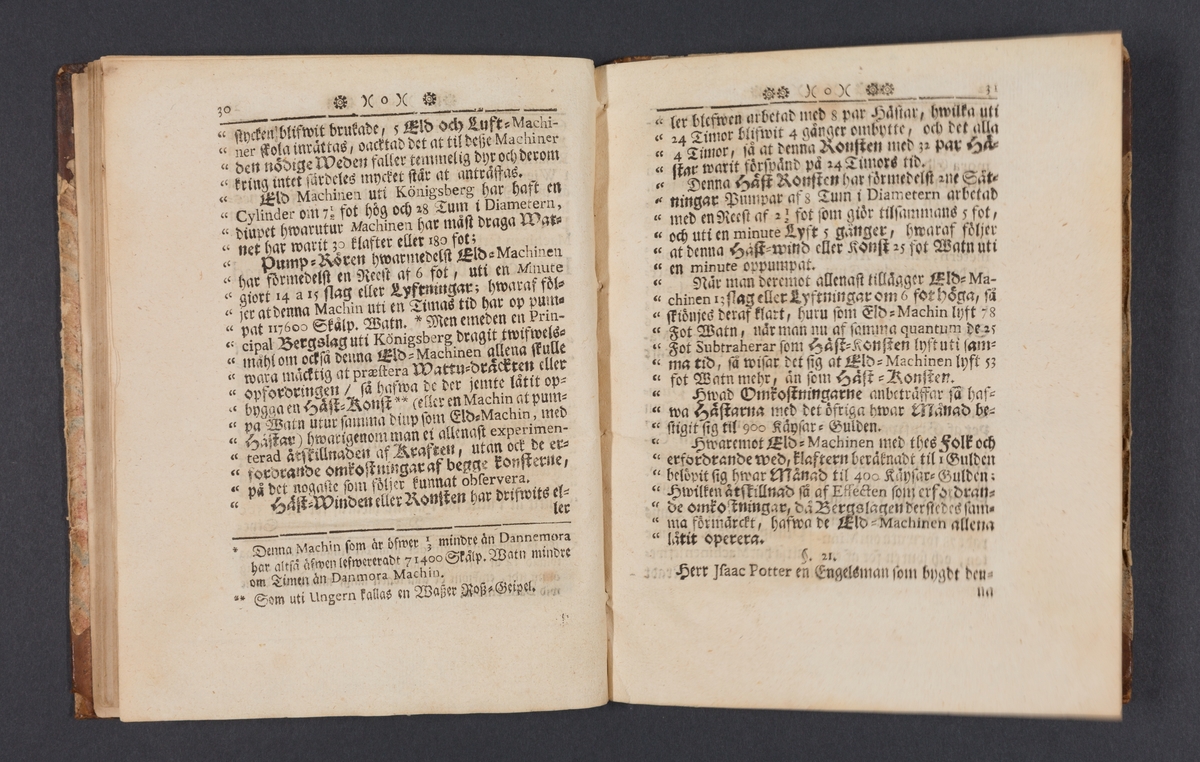 30 )( o )(
“ stycken blifwit brukade, 5 Eld och Luft-Machi-
“ ner skola inrättas, oacktad det at til deße Machiner
“ den nödige Weden faller temmelig dyr och derom
“ kring intet särdeles mycket står at anträffas.
“ Eld Machinen uti Königsberg har haft en
“ Cylinder om 7½ fot hög och 28 Tum i Diametern,
“ diupet hwarutur Machinen har mäst draga Wat-
“ net har warit 30 klafter eller 180 fot;
“ Pump-Rören hwarmedelst Eld-Machinen
“ har förmedelst en Reest af 6 fot, uti en Minute
“ giort 14 a 15 slag eller Lyftningar; hwaraf föl-
“ jer at denna Machin uti en Timas tid har op pum-
“ pat 117600 Skålp. Watn. * Men emeden en Prin-
“ cipal Bergslag uti Königsberg dragit twifwels-
“ måhl om också denna Eld-Machinen allena skulle
“ wara mäcktig at præstera Wattu-dräckten eller
“ opfordringen / så hafwa de der jemte låtit op-
“ bygga en Häst-Konst ** (eller en Machin at pum-
“ pa Watn utur samma diup som Eld-Machin, med
“ Hästar) hwarigenom man ei allenast experimen-
“ terad åtskillnaden af Kraften, utan ock de er-
“ fordrande omkostningar af begge konsterne,
“ på det nogaste som följer kunnat observera.
“ Häst-Winden eller Konsten har drifwits el-
ler
* Denna Machin som är öfwer ⅓ mindre än Dannemora
har altså äfwen lefwereradt 71400 Skålp. Watn mindre
om Timen än Danmora Machin.
** Som uti Ungern kallas en Waßer Roß-Geipel.
)( o )( 31
“ ler blefwen arbetad med 8 par Hästar, hwilka uti
“ 24 Timor blifwit 4 gånger ombytte, och det alla
“ 4 Timor, så at denna Konsten med 32 par Hä-
“ star warit förspänd på 24 Timors tid.
“ Denna Häst Konsten har förmedelst 2ne Sät-
“ ningar Pumpar af 8 Tum i Diametern arbetad
“ med en Reest af 2½ fot som giör tilsammans 5 fot,
“ och uti en minute Lyft 5 gånger, hwaraf följer
“ at denna Häst-wind eller Konst 25 fot Watn uti
“ en minute oppumpat.
“ När man deremot allenast tillägger Eld-Ma-
“ chinen 13 slag eller Lyftningar om 6 fot höga, så
“ skiönjes deraf klart, huru som Eld-Machin lyft 78
“ Fot Watn, när man nu af samma quantum de 25
“ Fot subtraherar som Häst-Konsten lyft uti sam-
“ ma tid, så wisar det sig at Eld-Machinen lyft 53
“ fot Watn mehr, än som Häst-Konsten.
“ Hwad Omkostningarne anbeträffar så haf-
“ wa Hästarna med det öfriga hwar Månad be-
“ stigit sig til 900 Käysar-Gulden.
“ Hwaremot Eld-Machinen med thes Folk och
“ erfordrande wed, klaftern beräknadt til 1 Gulden
“ belöpit sig hwar Månad til 400 Käysar-Gulden:
“ Hwilken åtskillnad så af Effecten som erfordran-
“ de omkostningar, då Bergslagen derstedes sam-
“ ma förmärckt, hafwa de Eld-Machinen allena
“ låtit operera.
§. 21.
Herr Isaac Potter en Engelsman som bygdt den-
na